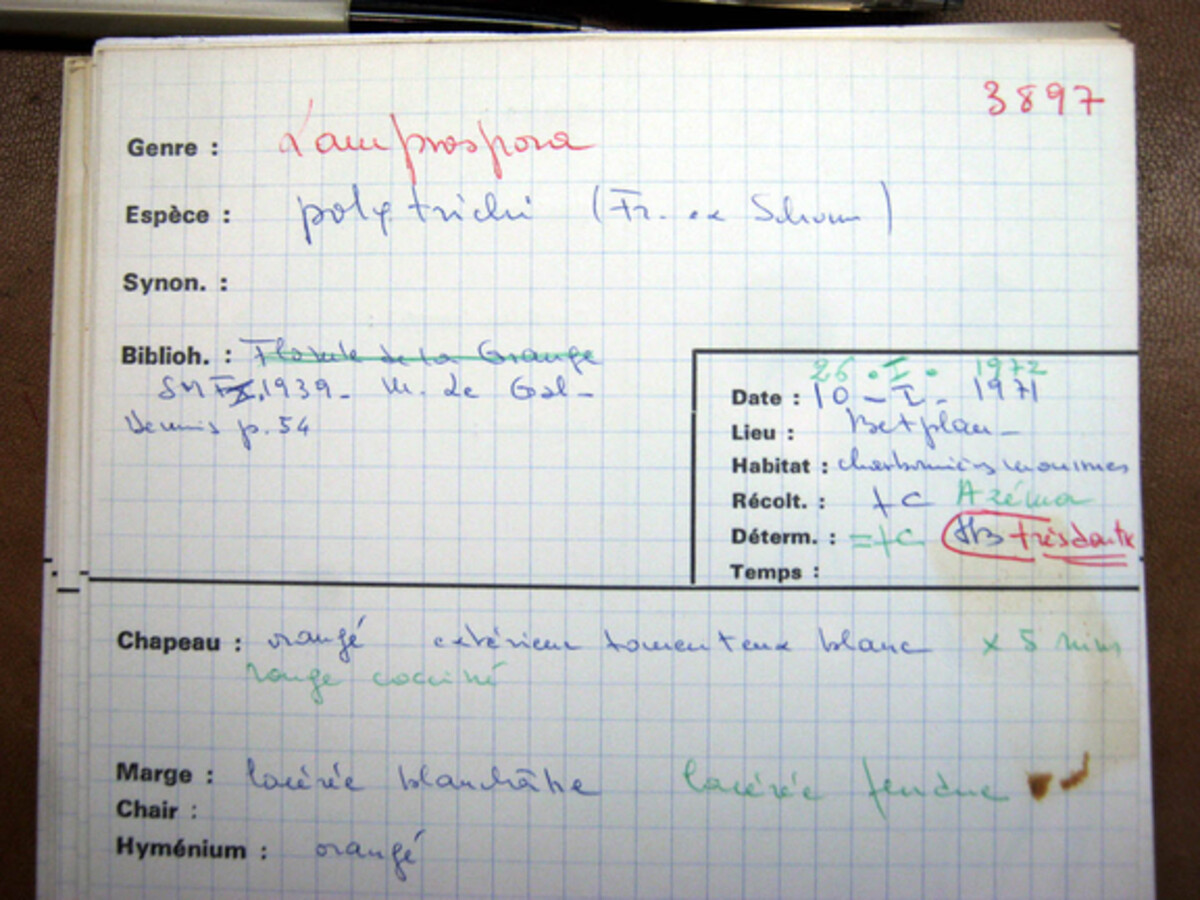 3897
Genre : Lamprospora
Espèce : polytrichi (Fr. ex Schum)
Synon. :
Biblioh. : Florule de la Grange
1939 - M. Le Gal -
Dennis p. 54
26 . I . 1972
Date : 10 - I - 1971
Lieu : Betplan -
Habitat : charbonnières moussues
Récolt. : + C Azéma
Déterm. : = + C très doute
Temps :
Chapeau : orangé extérieur tomenteux blanc x 5 mm
rouge cocciné
Marge : lacérée blanchâtre lacérée fendue
Chair :
Hyménium : orangé